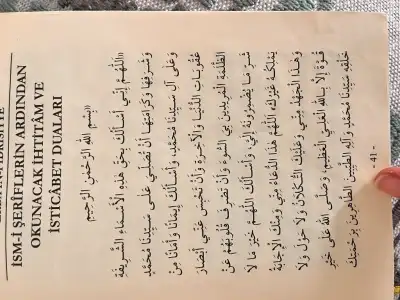 İSM-İ ŞERİFLERİN ARDINDAN
OKUNACAK İHTİTÂM VE
İSTİCÂBET DUALARI
﴿بِسْمِ اللَّهِ الرَّحْمَنِ الرَّحِيمِ﴾
﴿اَللَّهُمَّ إِنِّي أَسْأَلُكَ بِحَقِّ هَذِهِ الْأَسْمَاءِ الشَّرِيفَةِ
وَشَرَفِهَا وَكَرَامَتِهَا أَنْ تُصَلِّيَ عَلَى سَيِّدِنَا مُحَمَّدٍ
وَعَلَى آلِ سَيِّدِنَا مُحَمَّدٍ، وَأَسْأَلُكَ إِيمَانًا وَأَمَانًا مِنْ
عُقُوبَاتِ الدُّنْيَا وَالْآخِرَةِ وَأَنْ تَحْبِسَ عَنِّي أَبْصَارَ
الظَّلَمَةِ الْمُرِيدِينَ بِيَ السُّوءَ وَأَنْ تَصْرِفَ قُلُوبَهُمْ عَنْ
شَرِّ مَا يُضْمِرُونَهُ لِي، وَأَسْأَلُكَ اللَّهُمَّ خَيْرَ مَا لَا
يَمْلِكُهُ غَيْرُكَ، اللَّهُمَّ هَذَا الدُّعَاءُ مِنِّي وَمِنْكَ الْإِجَابَةُ
وَهَذَا الْجَهْدُ مِنِّي وَعَلَيْكَ التُّكْلَانُ وَلَا حَوْلَ وَلَا
قُوَّةَ إِلَّا بِاللَّهِ الْعَلِيِّ الْعَظِيمِ، وَصَلَّى اللَّهُ عَلَى خَيْرِ
خَلْقِهِ سَيِّدِنَا مُحَمَّدٍ وَآلِهِ الطَّيِّبِينَ الطَّاهِرِينَ بِرَحْمَتِكَ
- 41 -